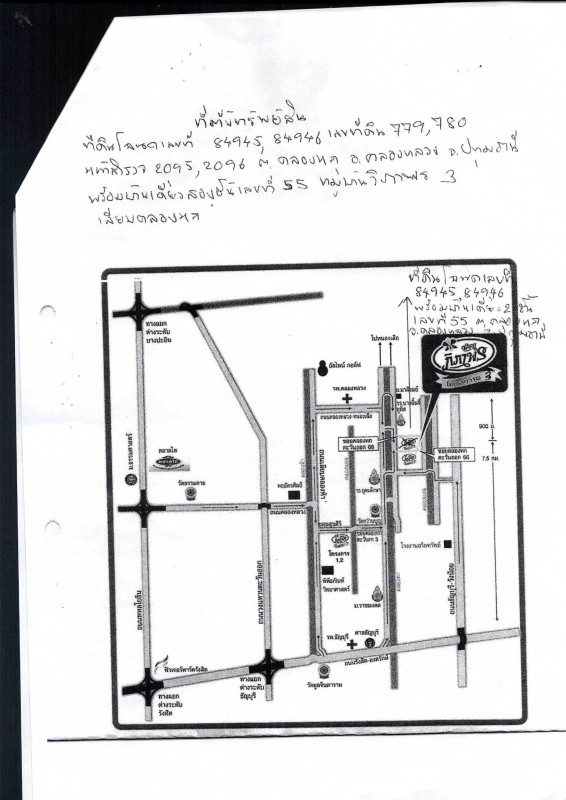 ที่ตั้งทรัพย์สิน
ที่ดินโฉนดเลขที่ 84945, 84946 เลขที่ดิน 779, 780
หน้าสำรวจ 2095, 2096 ต. คลองหก อ. คลองหลวง จ. ปทุมธานี
พร้อมบ้านเดี่ยวสองชั้นเลขที่ 55 หมู่บ้านวิภาพร 3
เลียบคลองหก
ที่ดินโฉนดเลขที่
84945, 84946
พร้อมบ้านเดี่ยว 2 ชั้น
เลขที่ 55 ต. คลองหก
อ. คลองหลวง จ. ปทุมธานี
ทางแยก
ต่างระดับ
บางปะอิน
อัลไพน์ กอล์ฟ
ไปหนองเสือ
รพ.คลองหลวง
ถนนคลองหลวง-หนองเสือ
ซอยคลองหก
ตะวันออก 68
ซอยคลองหก
ตะวันออก 66
900 ม.
7.5 กม.
ม.ธรรมศาสตร์
ตลาดไท
วัดธรรมกาย
หอรัตรศิลป์
ถนนคลองหลวง
ถนนเลียบคลองห้า
โครงการ
1,2
พิพิธภัณฑ์
วิทยาศาสตร์
โรงงานอริยทรัพย์
ม.ราชมงคล
รพ.ธัญบุรี
ศาลธัญบุรี
ถนนรังสิต-องครักษ์
วัดมูลจินดาราม
ถนนพหลโยธิน
ถนนวงแหวนตะวันออก
ถนนธัญบุรี-วังน้อย
ฟิวเจอร์พาร์ครังสิต
ทางแยก
ต่างระดับ
รังสิต
ทางแยก
ต่างระดับ
ธัญบุรี